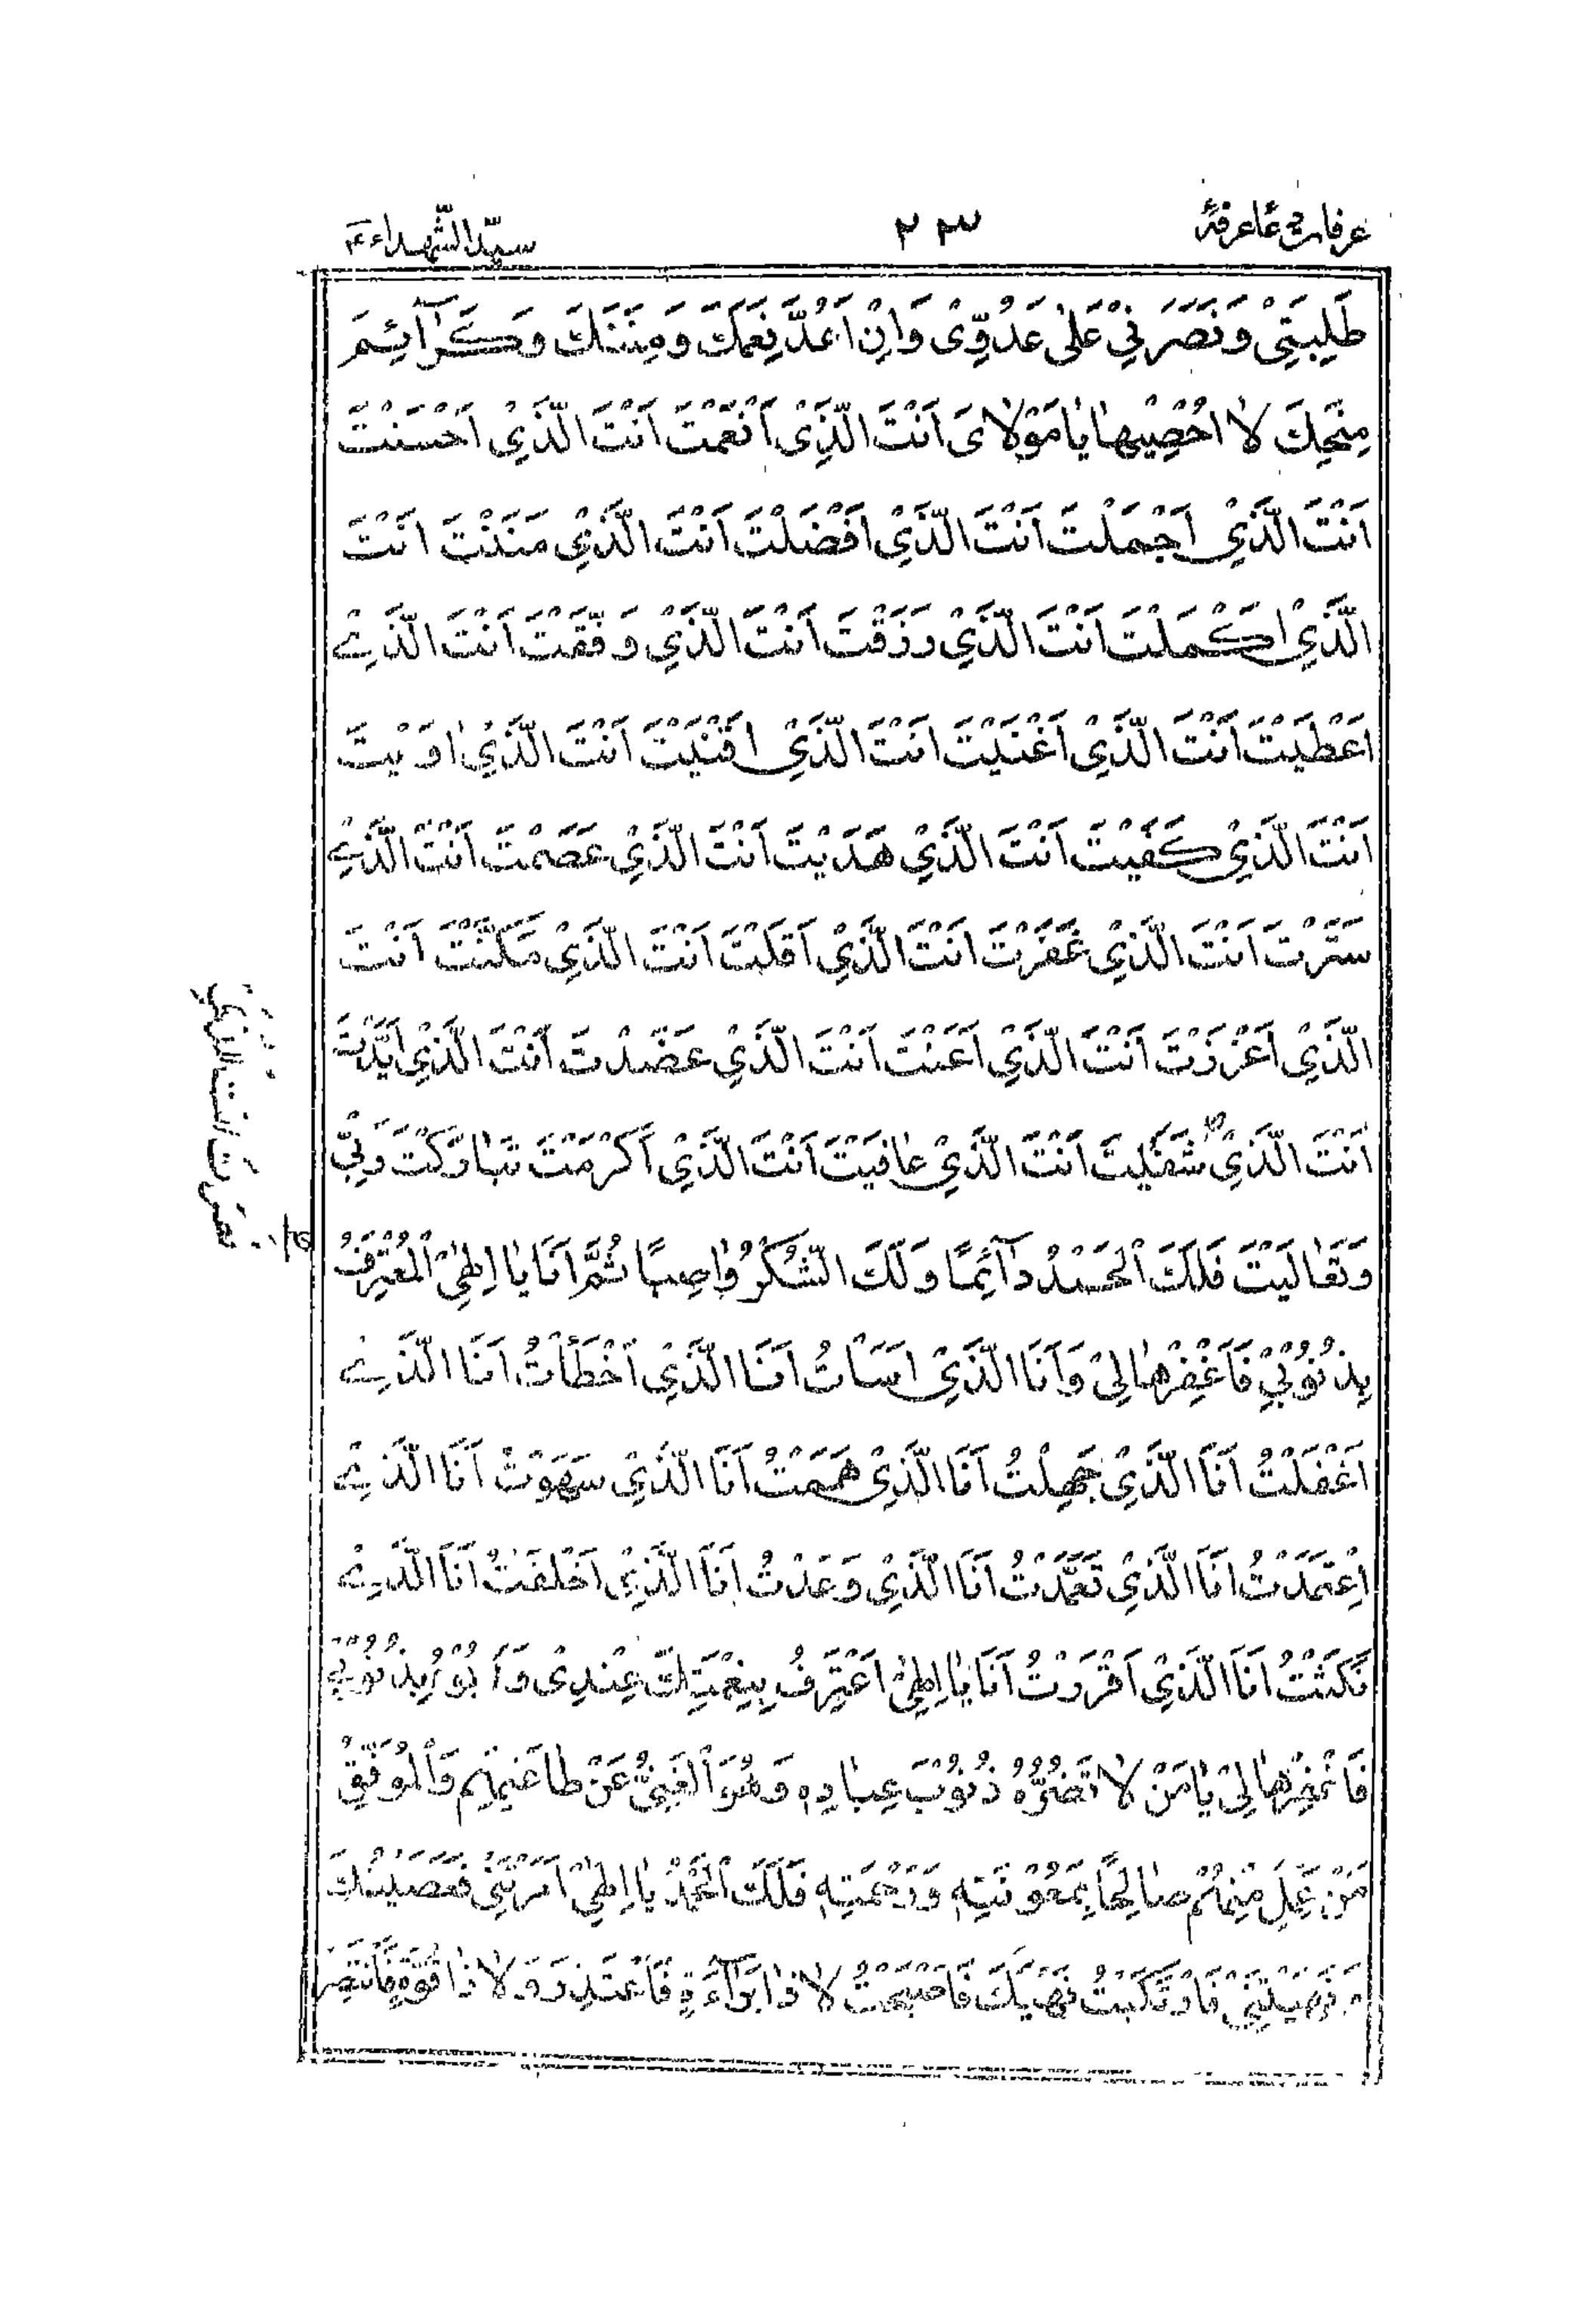 عرفات دعاعرفهٔ
٢٣
سيّد الشّهداءع
طَلِبَتِىْ وَنَصَرَنِىْ عَلىٰ عَدُوِّىْ وَاِنْ اَعُدَّ نِعَمَكَ وَمِنَنَكَ وَكَرٰآئِمَ
مِنَحِكَ لاٰ اُحْصِيْهٰا يٰا مَوْلاٰىَ اَنْتَ الَّذِىْ اَنْعَمْتَ اَنْتَ الَّذِىْ اَحْسَنْتَ
اَنْتَ الَّذِىْ اَجْمَلْتَ اَنْتَ الَّذِىْ اَفْضَلْتَ اَنْتَ الَّذِىْ مَنَنْتَ اَنْتَ
الَّذِىْ اَكْمَلْتَ اَنْتَ الَّذِىْ رَزَقْتَ اَنْتَ الَّذِىْ وَفَّقْتَ اَنْتَ الَّذِىْ
اَعْطَيْتَ اَنْتَ الَّذِىْ اَغْنَيْتَ اَنْتَ الَّذِىْ اَقْنَيْتَ اَنْتَ الَّذِىْ اٰوَيْتَ
اَنْتَ الَّذِىْ كَفَيْتَ اَنْتَ الَّذِىْ هَدَيْتَ اَنْتَ الَّذِىْ عَصَمْتَ اَنْتَ الَّذِىْ
سَتَرْتَ اَنْتَ الَّذِىْ غَفَرْتَ اَنْتَ الَّذِىْ اَقَلْتَ اَنْتَ الَّذِىْ مَكَّنْتَ اَنْتَ
الَّذِىْ اَعْزَزْتَ اَنْتَ الَّذِىْ اَعَنْتَ اَنْتَ الَّذِىْ عَضَدْتَ اَنْتَ الَّذِىْ اَيَّدْتَ
اَنْتَ الَّذِىْ شَفَيْتَ اَنْتَ الَّذِىْ عٰافَيْتَ اَنْتَ الَّذِىْ اَكْرَمْتَ تَبٰارَكْتَ رَبِّىْ
نصرت انت الذي
وَتَعٰالَيْتَ فَلَكَ الْحَمْدُ دٰآئِمًا وَلَكَ الشُّكْرُ وٰاصِبًا ثُمَّ اَنَا يٰا اِلٰهِىْ الْمُعْتَرِفُ
بِذُنُوْبِىْ فَاَغْفِرْهٰا لِىْ وَاَنَا الَّذِىْ اَسَاْتُ اَنَا الَّذِىْ اَخْطَأْتُ اَنَا الَّذِىْ
اَغْفَلْتُ اَنَا الَّذِىْ جَهِلْتُ اَنَا الَّذِىْ هَمَمْتُ اَنَا الَّذِىْ سَهَوْتُ اَنَا الَّذِىْ
اِعْتَمَدْتُ اَنَا الَّذِىْ تَعَمَّدْتُ اَنَا الَّذِىْ وَعَدْتُ اَنَا الَّذِىْ اَخْلَفْتُ اَنَا الَّذِىْ
نَكَثْتُ اَنَا الَّذِىْ اَقْرَرْتُ اَنَا يٰا اِلٰهِىْ اَعْتَرِفُ بِنِعْمَتِكَ عِنْدِىْ وَاَبُوْءُ بِذُنُوْبِىْ
فَاَغْفِرْهٰا لِىْ يٰا مَنْ لاٰ تَضُرُّهُ ذُنُوْبَ عِبٰادِهٖ وَهُوَ الْغَنِىُّ عَنْ طٰاعَتِهِمْ وَالْمُوَفِّقُ
مَنْ عَمِلَ مِنْهُمْ صٰالِحًا بِمَعُوْنَتِهٖ وَرَحْمَتِهٖ فَلَكَ الْحَمْدُ يٰا اِلٰهِىْ اَمَرْتَنِىْ فَعَصَيْتُكَ
وَنَهَيْتَنِىْ فَارْتَكَبْتُ نَهْيَكَ فَاَصْبَحْتُ لاٰ ذٰا بَرٰآءَةٍ فَاَعْتَذِرَ وَلاٰ ذٰا قُوَّةٍ فَاَنْتَصِرَ